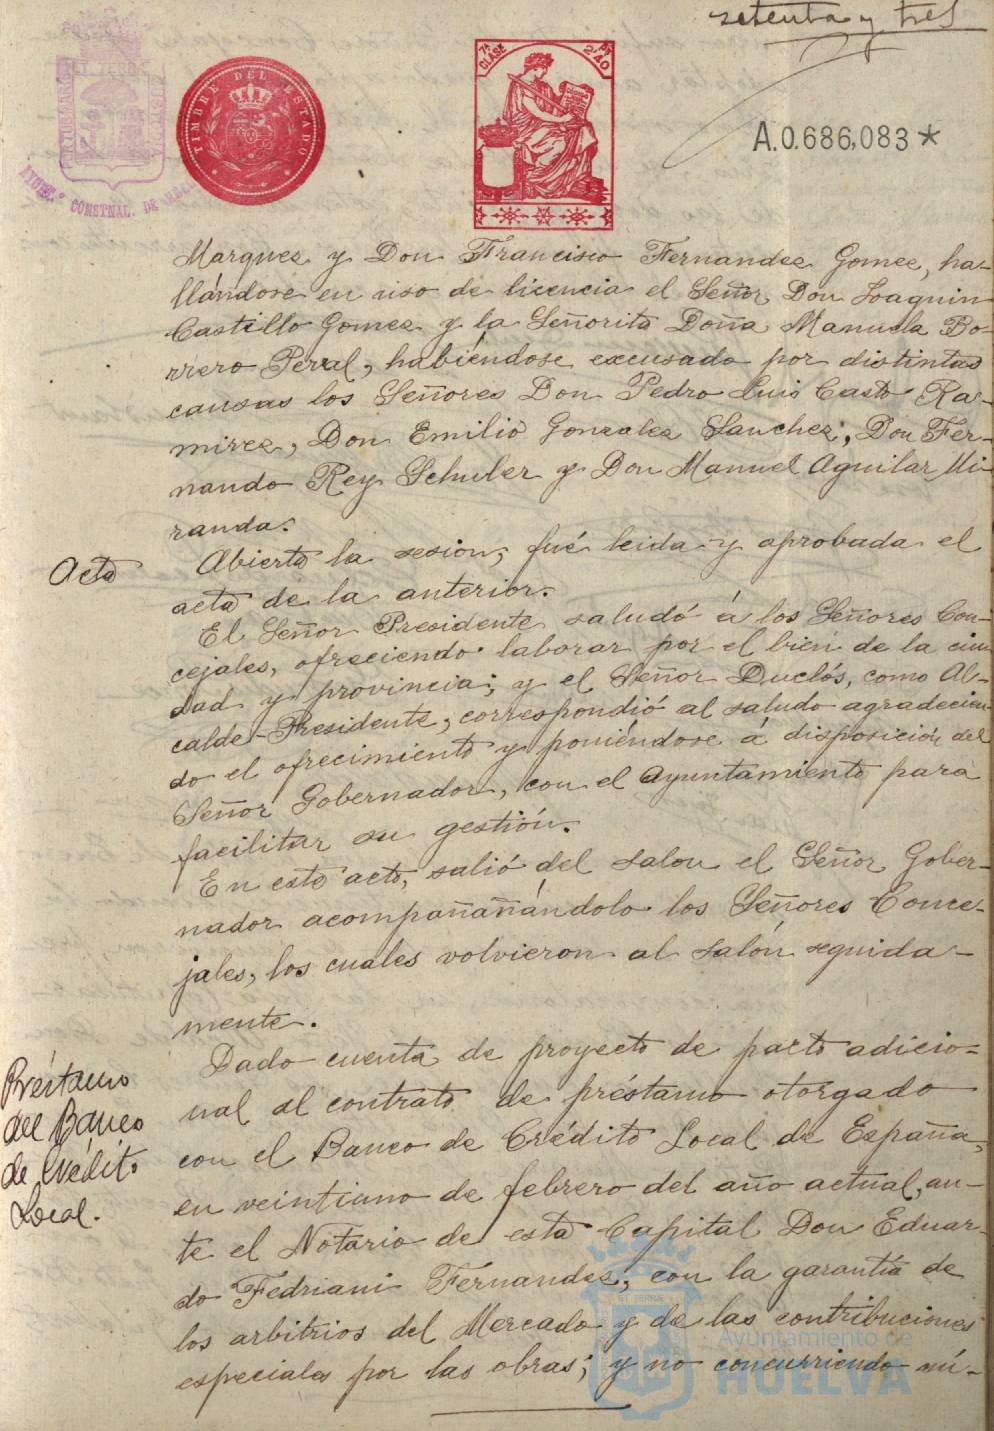 setenta y tres
TIMBRE DEL ESTADO
7ª CLASE
Pts 2'40
A.0.686,083*
AYUNTº CONSTNAL. DE HUELVA
Marquez y Don Francisco Fernandez Gomez, ha-
llándose en uso de licencia el Señor Don Joaquin
Castillo Gomez y la Señorita Doña Manuela Bo-
rrero Peral, habiéndose excusado por distintas
causas los Señores Don Pedro Luis Casto Ra-
mirez, Don Emilio Gonzalez Sanchez, Don Fer-
nando Rey Schuler y Don Manuel Aguilar Mi-
randa.
Acta
Abierta la sesion, fué leida y aprobada el
acta de la anterior.
El Señor Presidente saludó á los Señores Con-
cejales, ofreciendo laborar por el bien de la ciu
dad y provincia; y el Señor Duclós, como Al-
calde-Presidente, correspondió al saludo agradecien
do el ofrecimiento y poniéndose á disposición del
Señor Gobernador, con el Ayuntamiento para
facilitar su gestión.
En este acto, salió del salon el Señor Gober-
nador acompañañándolo los Señores Conce-
jales, los cuales volvieron al salón seguida-
mente.
Préstamo
del Banco
de Crédito
Local.
Dado cuenta de proyecto de pacto adicio-
nal al contrato de préstamo otorgado
con el Banco de Crédito Local de España,
en veintiuno de febrero del año actual, an-
te el Notario de esta Capital Don Eduar-
do Fedriani Fernandez, con la garantía de
los arbitrios del Mercado y de las contribuciones
especiales por las obras; y no concurriendo nú-
Ayuntamiento de
HUELVA